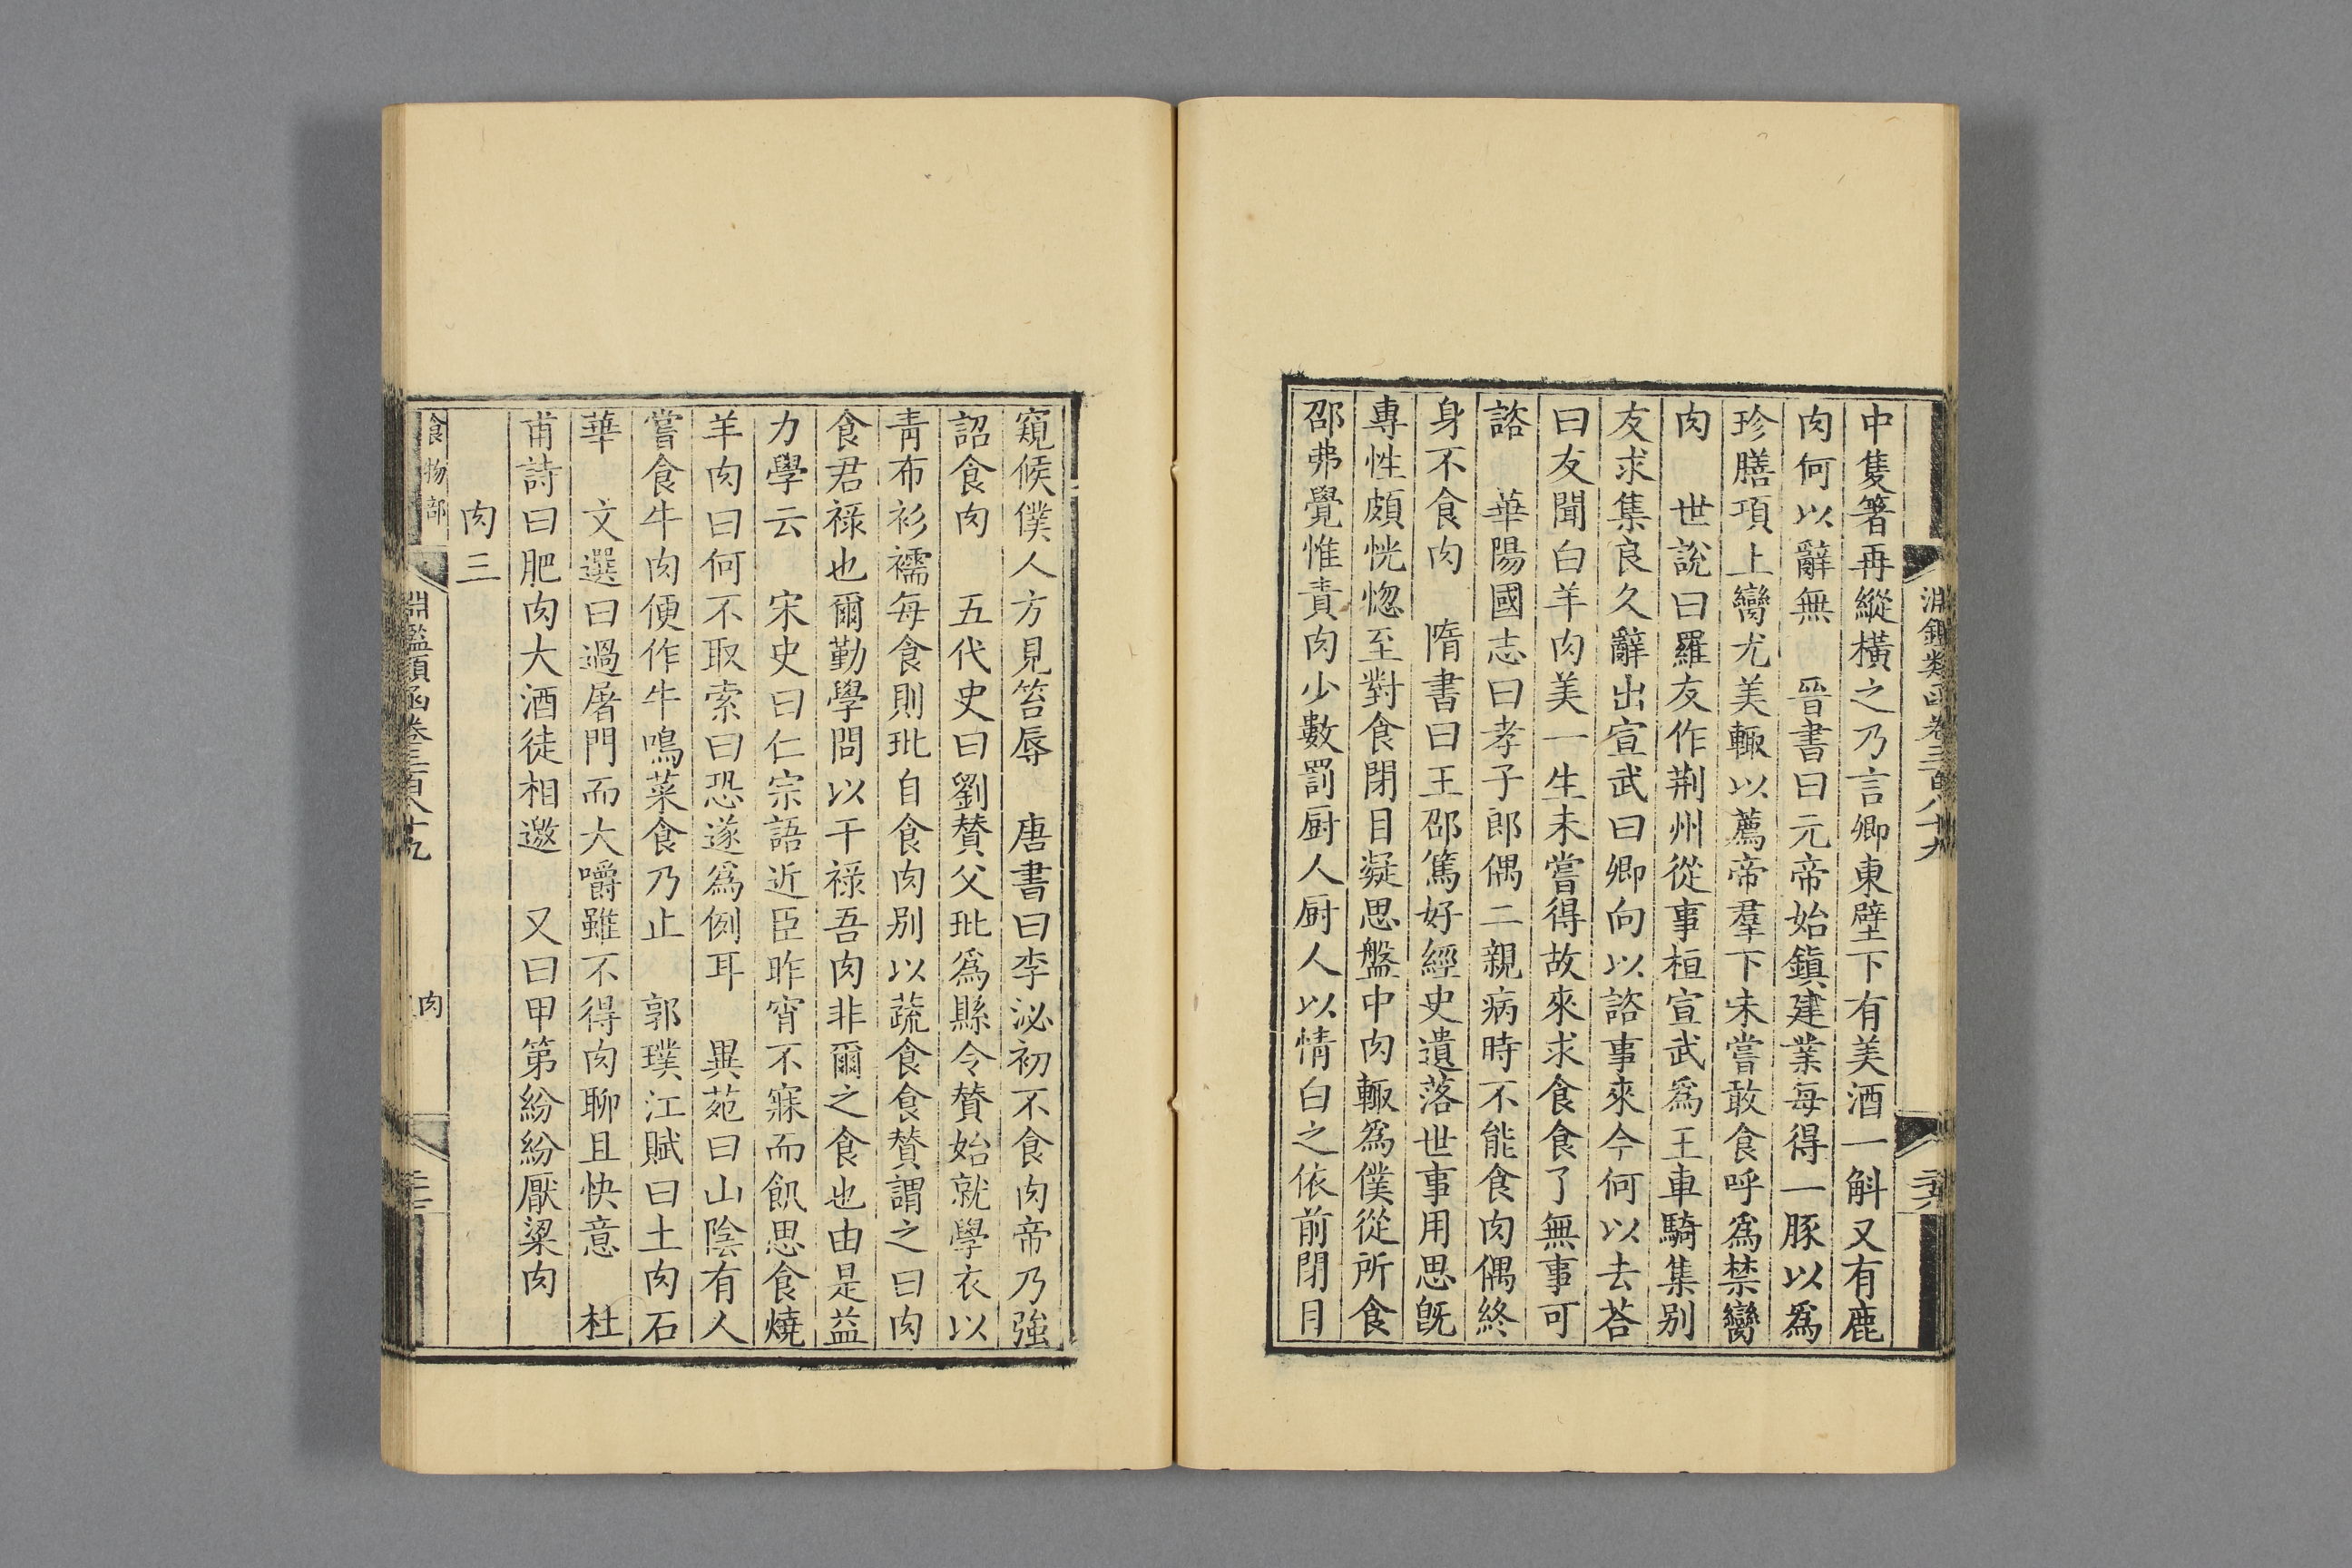 淵鑑類函卷三百八十九
中隻箸再縱橫之乃言卿東壁下有美酒一斛又有鹿
肉何以辭無　晉書曰元帝始鎮建業每得一豚以爲
珍膳項上臠尤美輙以薦帝羣下未嘗敢食呼爲禁臠
肉　世說曰羅友作荆州從事桓宣武爲王車騎集别
友求集良久辭出宣武曰卿向以諮事來今何以去荅
曰友聞白羊肉美一生未嘗得故來求食食了無事可
諮　華陽國志曰孝子郎偶二親病時不能食肉偶終
身不食肉　隋書曰王邵篤好經史遺落世事用思旣
專性頗恍惚至對食閉目凝思盤中肉輙爲僕從所食
邵弗覺惟責肉少數罰厨人厨人以情白之依前閉目
窺候僕人方見笞辱　唐書曰李泌初不食肉帝乃強
詔食肉　五代史曰劉贊父玭爲縣令贊始就學衣以
青布衫襦每食則玭自食肉别以蔬食食贊謂之曰肉
食君祿也爾勤學問以干祿吾肉非爾之食也由是益
力學云　宋史曰仁宗語近臣昨宵不寐而飢思食燒
羊肉曰何不取索曰恐遂爲例耳　異苑曰山陰有人
嘗食牛肉便作牛鳴菜食乃止　郭璞江賦曰土肉石
華　文選曰過屠門而大嚼雖不得肉聊且快意　杜
甫詩曰肥肉大酒徒相邀　又曰甲第紛紛厭粱肉
肉三
食物部
淵鑑類函卷三百八十九
肉